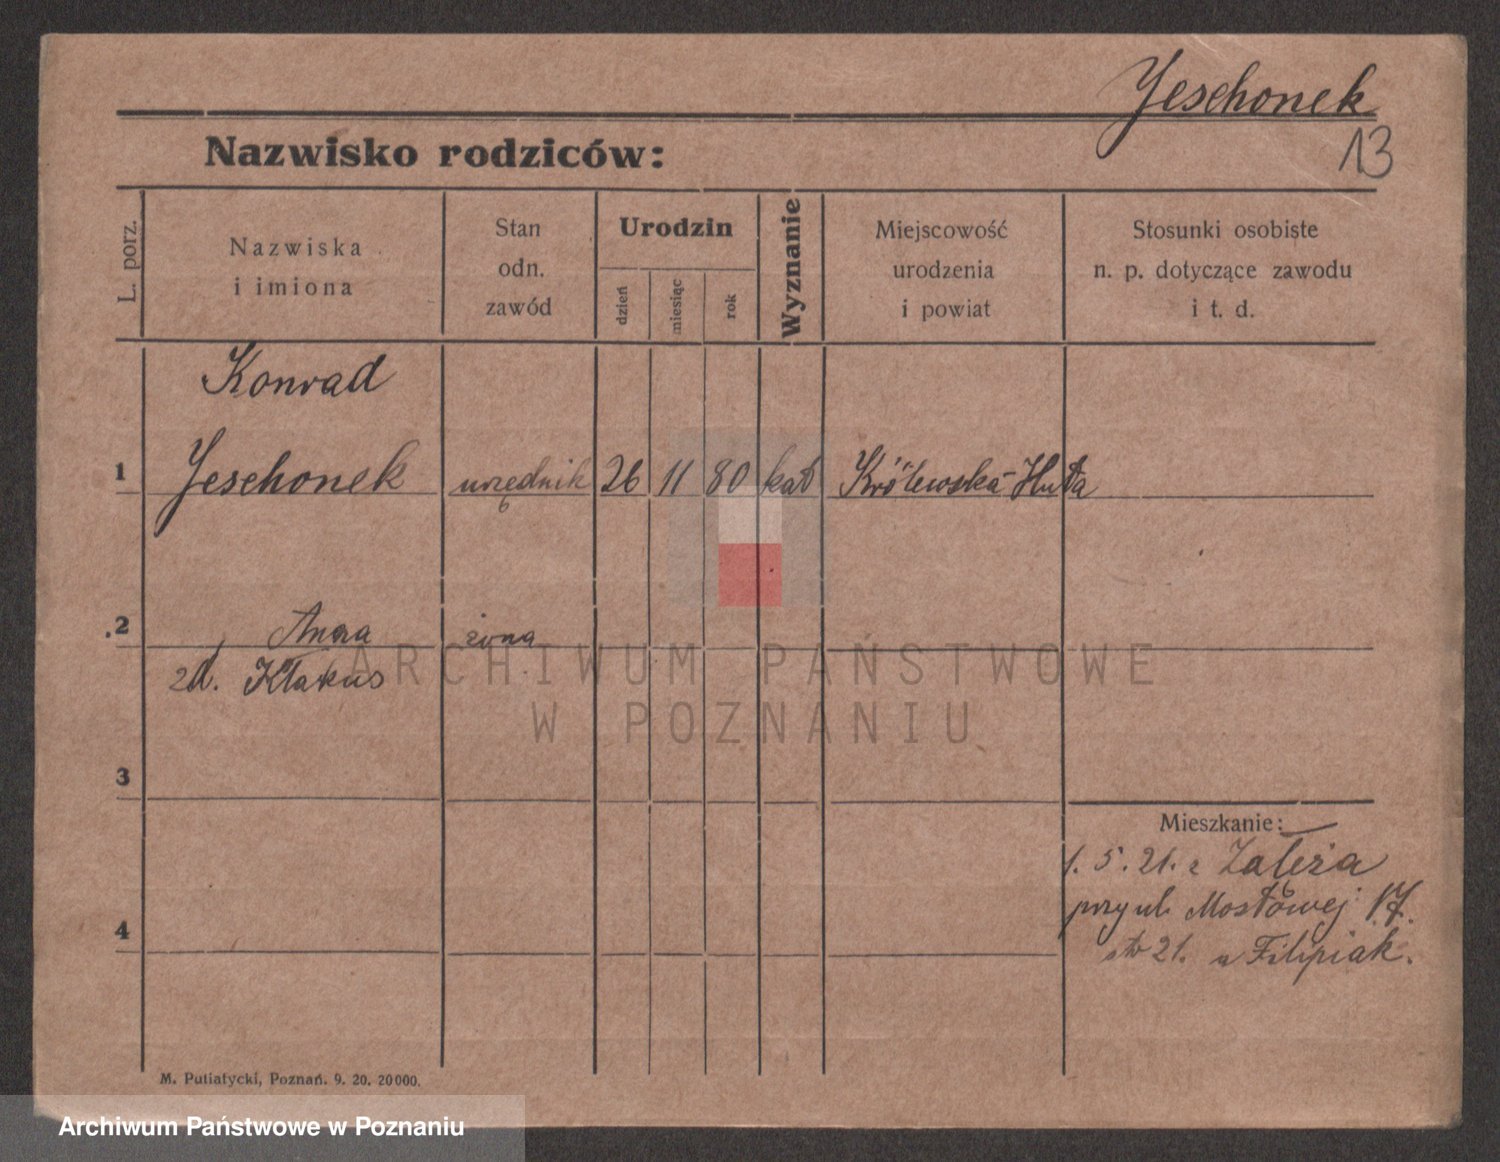 Jeschonek
13
Nazwisko rodziców:
L. porz.
Nazwiska
i imiona
Stan
odn.
zawód
Urodzin
dzień
miesiąc
rok
Wyznanie
Miejscowość
urodzenia
i powiat
Stosunki osobiste
n. p. dotyczące zawodu
i t. d.
Konrad
1 Jeschonek urzędnik 26 11 80 kat Królewska-Huta
2 Anna żona
zd. Kłakus
3
Mieszkanie:
1. 5. 21. z Zależa
przy ul. Mostowej 17.
4
21. u Filipiak.
M. Putiatycki, Poznań. 9. 20. 20000.
ARCHIWUM PAŃSTWOWE
W POZNANIU
Archiwum Państwowe w Poznaniu